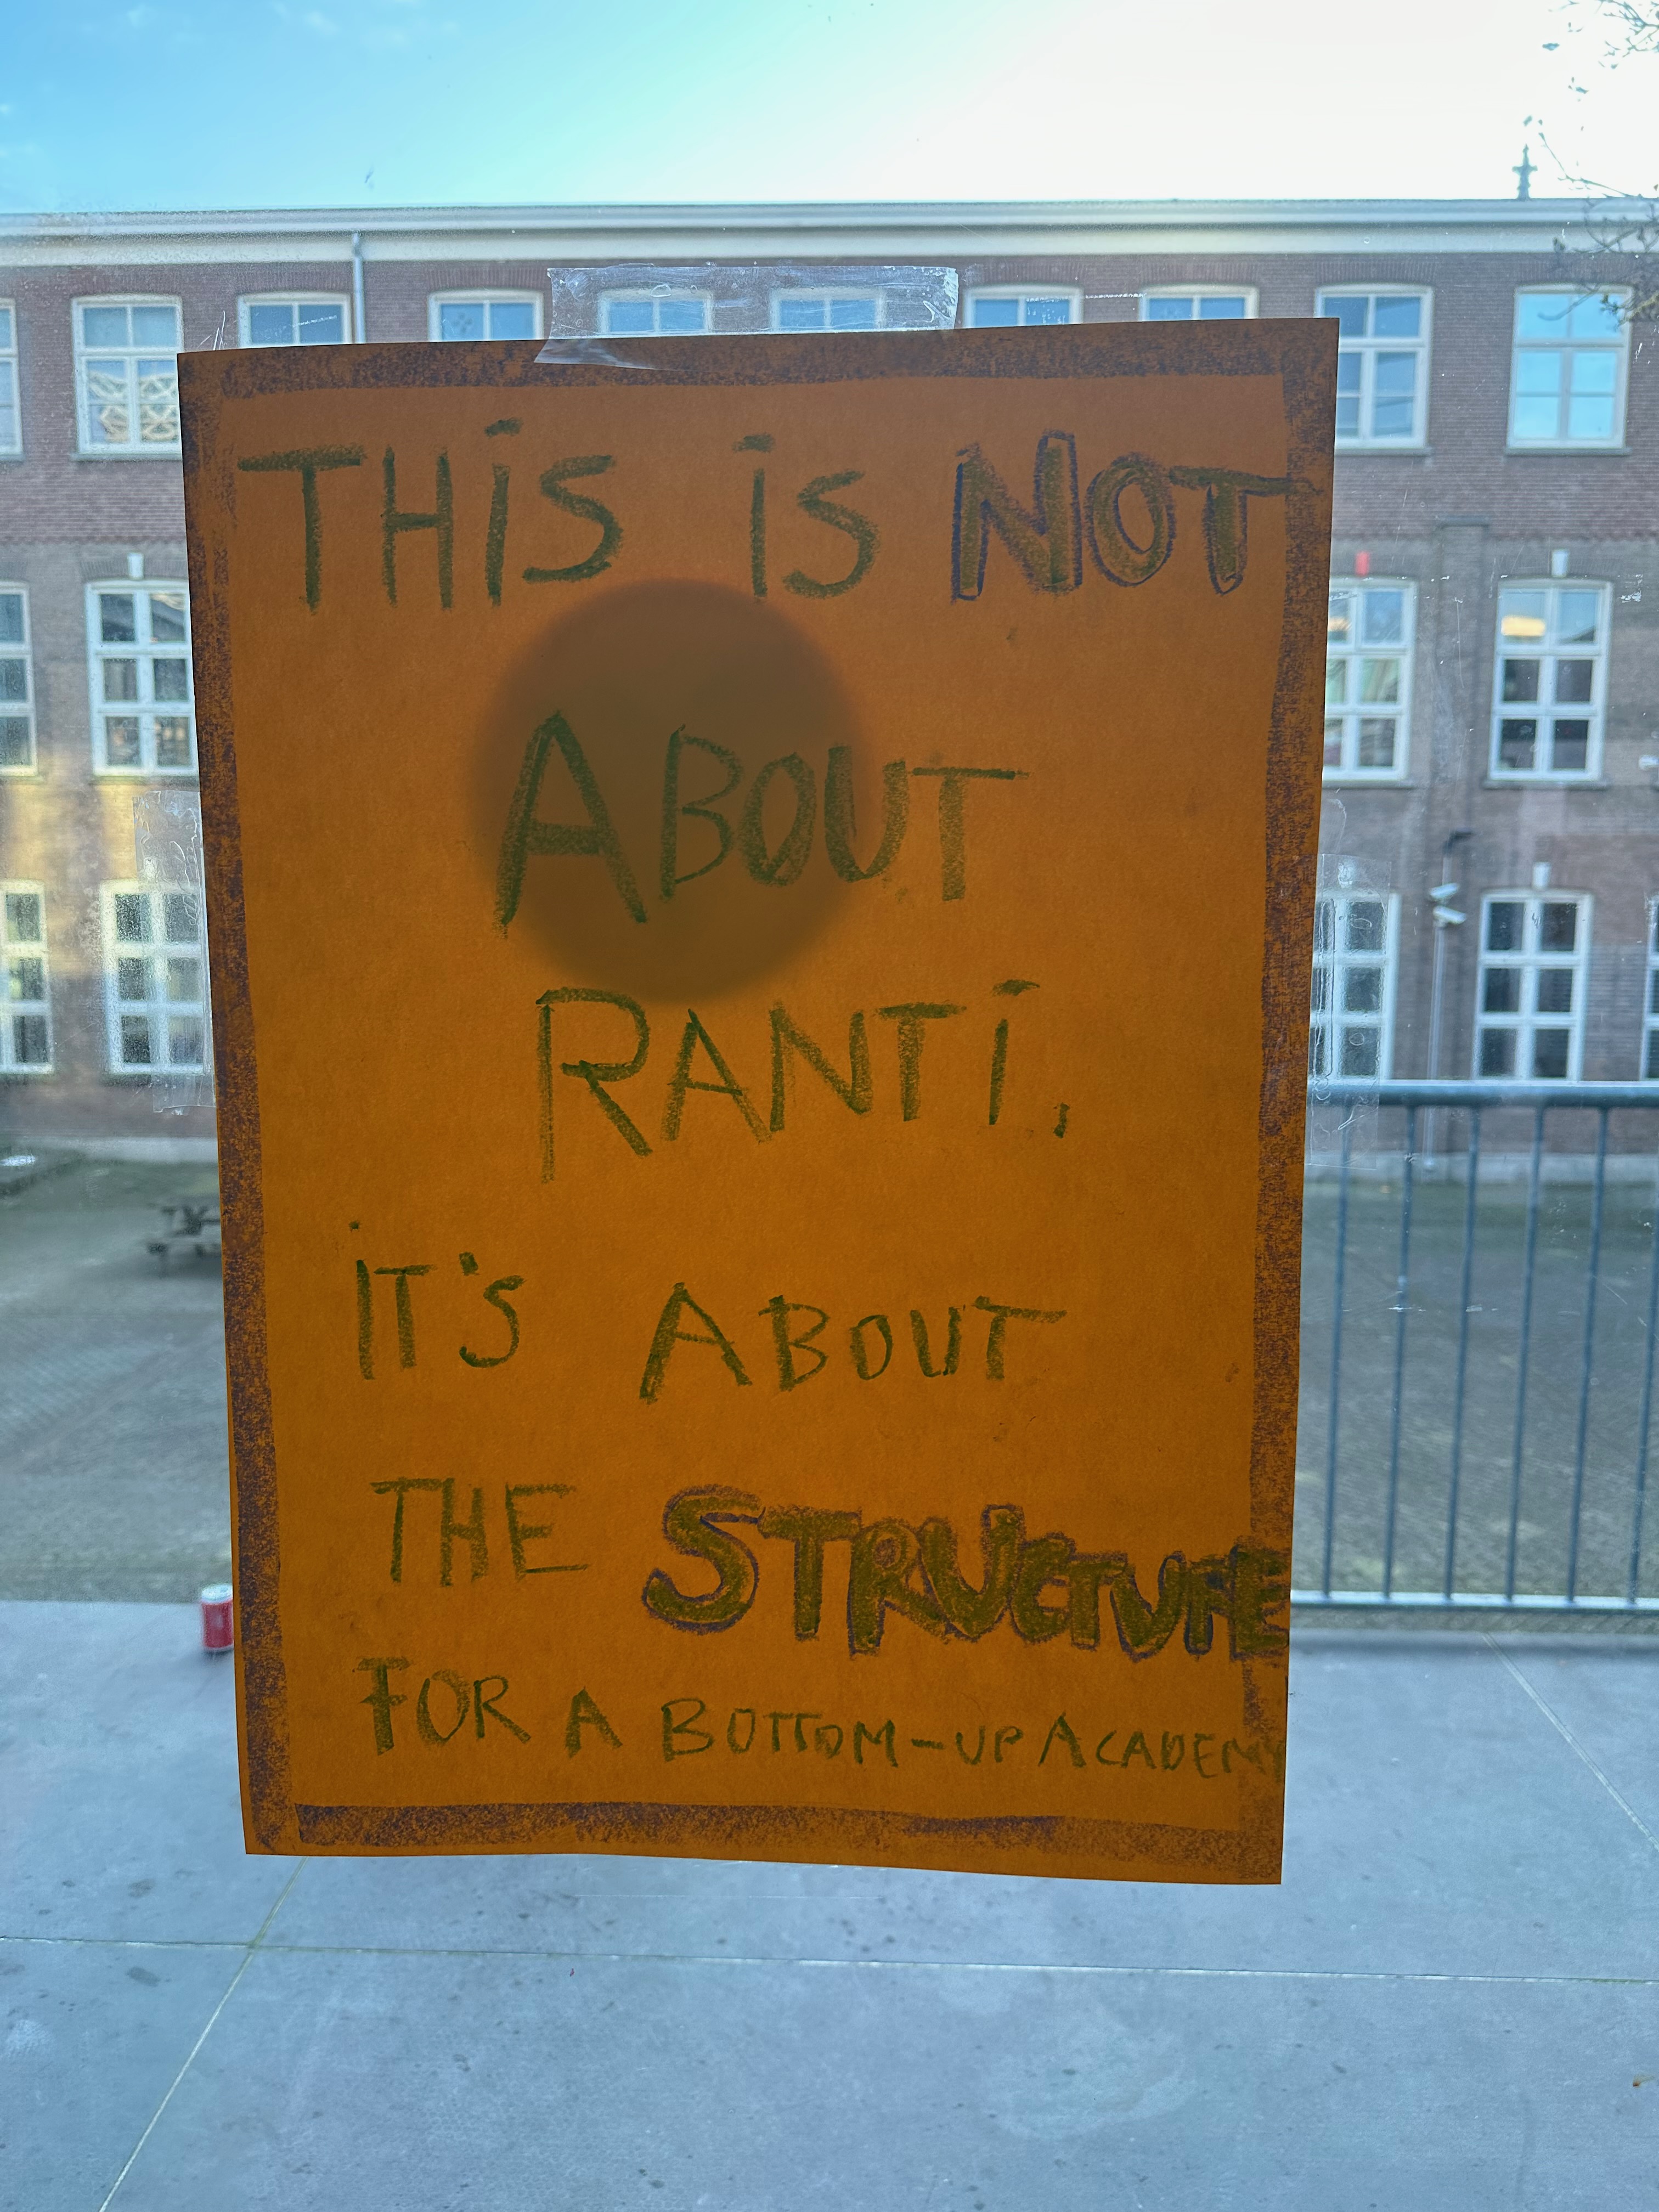 THiS iS NOT
ABOUT
RANTi,
iT'S ABOUT
THE STRUCTURE
FOR A BOTTOM-UP ACADEMY